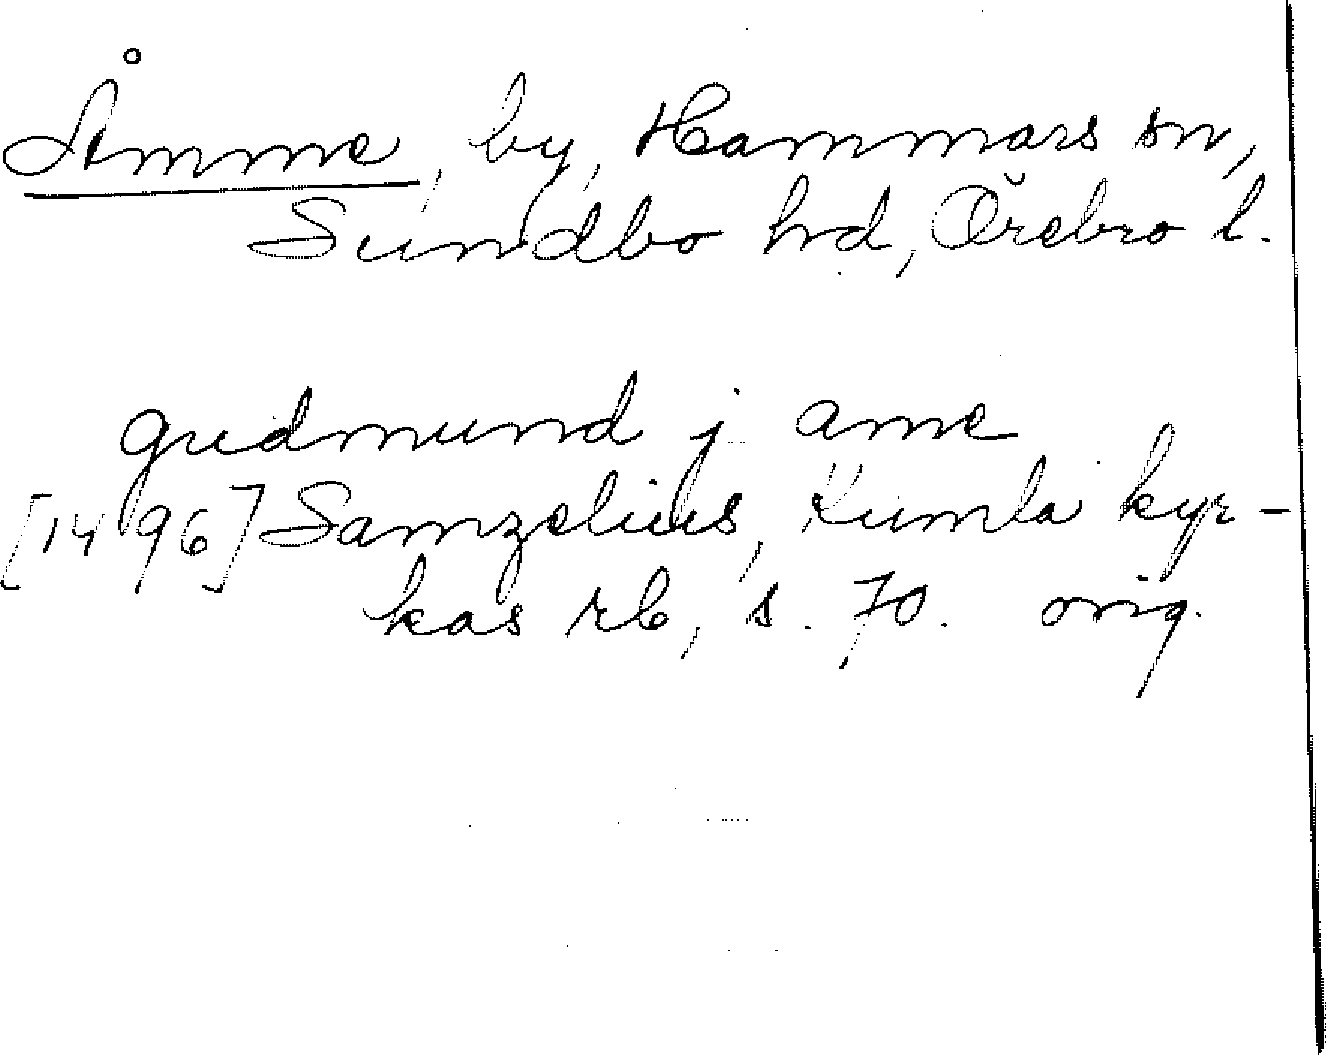 Åmme, by, Hammars sn,
Sundbo hd, Örebro l.
gudmund j ame
[1496] Samzelius, Kumla kyr-
kas rb, s. 70. orig.